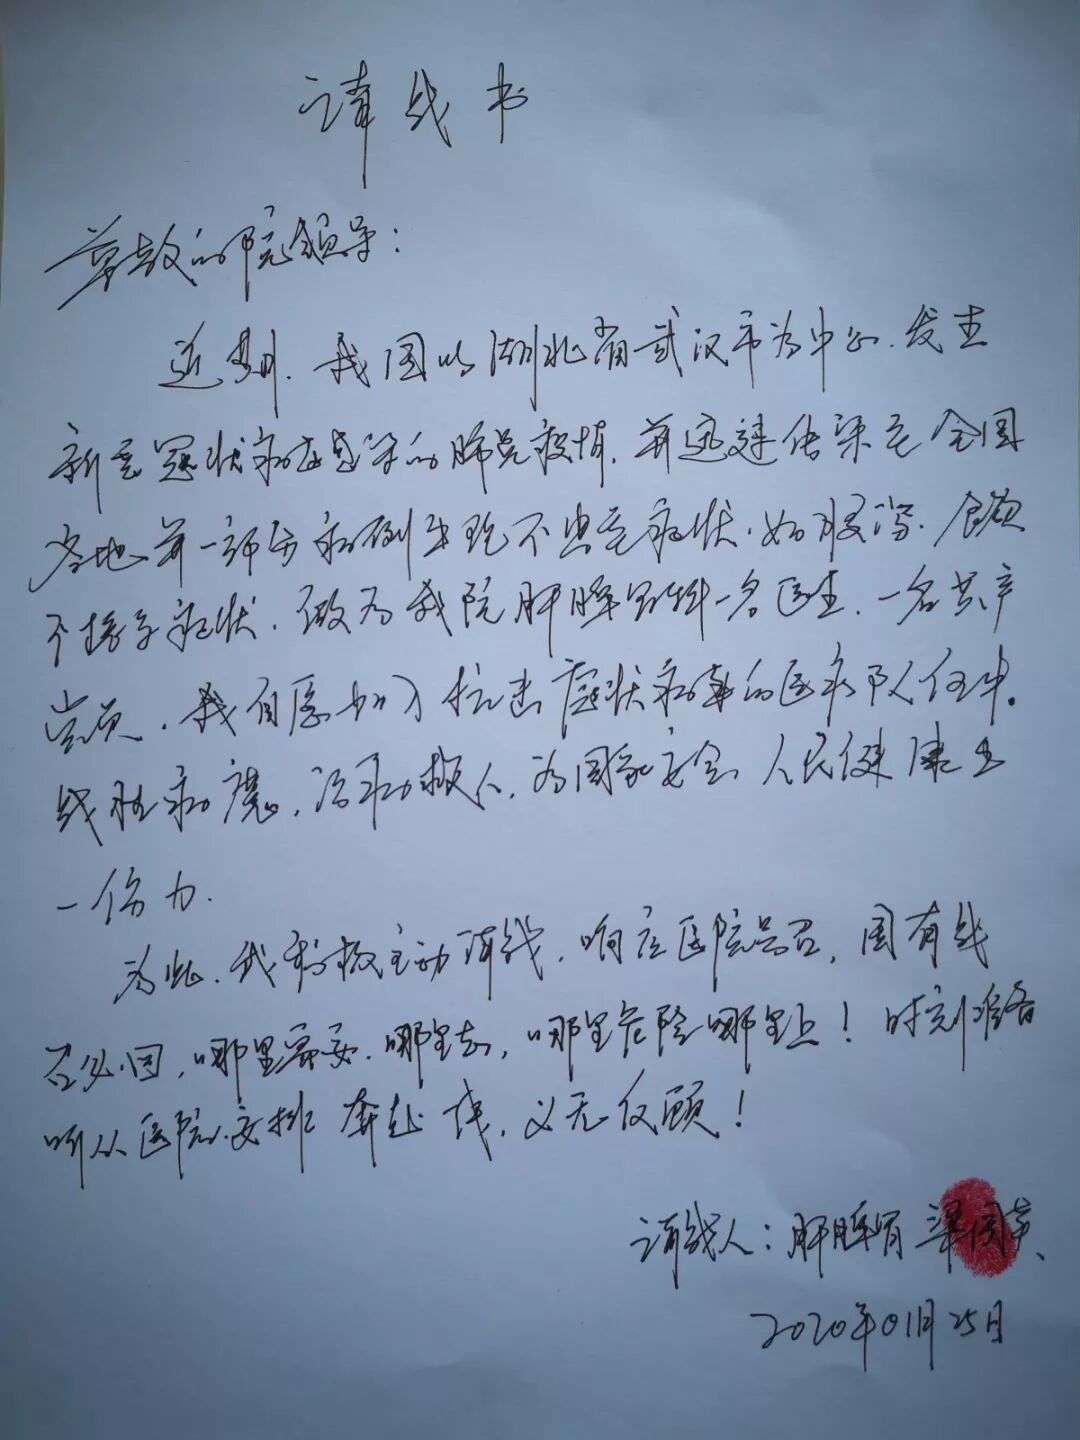 请战书
尊敬的院领导：
近期，我国以湖北省武汉市为中心，发生
新型冠状病毒感染的肺炎疫情，并迅速传染至全国
当地并一部分病例出现不典型症状，如腹泻，食欲
不振等症状，做为我院肝脾胃科一名医生，一名共产
党员，我自愿加入抗击冠状病毒的医疗队伍中。
战胜病魔，治病救人，为国家安全，人民健康出
一份力。
为此，我积极主动请战，响应医院号召，国有战
召必回，哪里需要，哪里去，哪里危险哪里上！时刻准备
听从医院安排 奔赴一线，义无反顾！
请战人：肝脾胃 梁国英
2020年01月25日